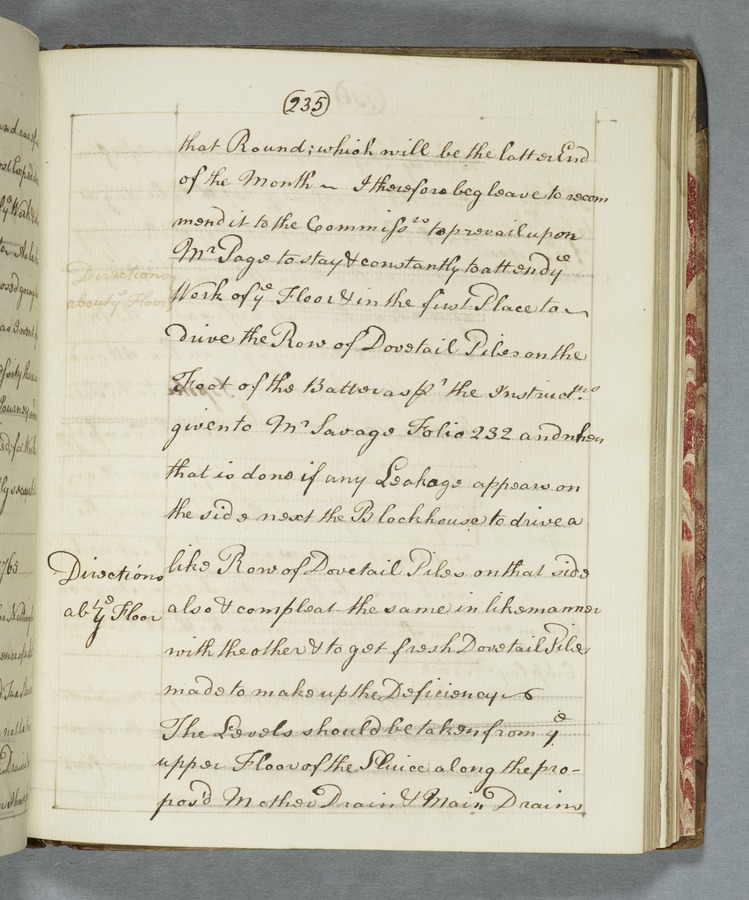 (235)
that Round; which will be the latter End
of the Month ~ I therefore beg leave to recom
mend it to the Commiss.rs to prevail upon
Mr Page to stay & constantly to attend ye
Directions
about ye Floor
Work of ye Floor & in the first Place to ~
drive the Row of Dovetail Piles on the
Foot of the Batter as pr the Instruct.ns
given to Mr Savage Folio 232 and when
that is done if any Leakage appears on
the side next the Blockhouse to drive a
Directions
abt ye Floor
like Row of Dovetail Piles on that side
also & compleat the same in like manner
with the other & to get fresh Dovetail Piles
made to make up the Deficiency ~
The Levels should be taken from ye
upper Floor of the Sluice along the pro-
pos'd Mother Drain & Main Drains
1765